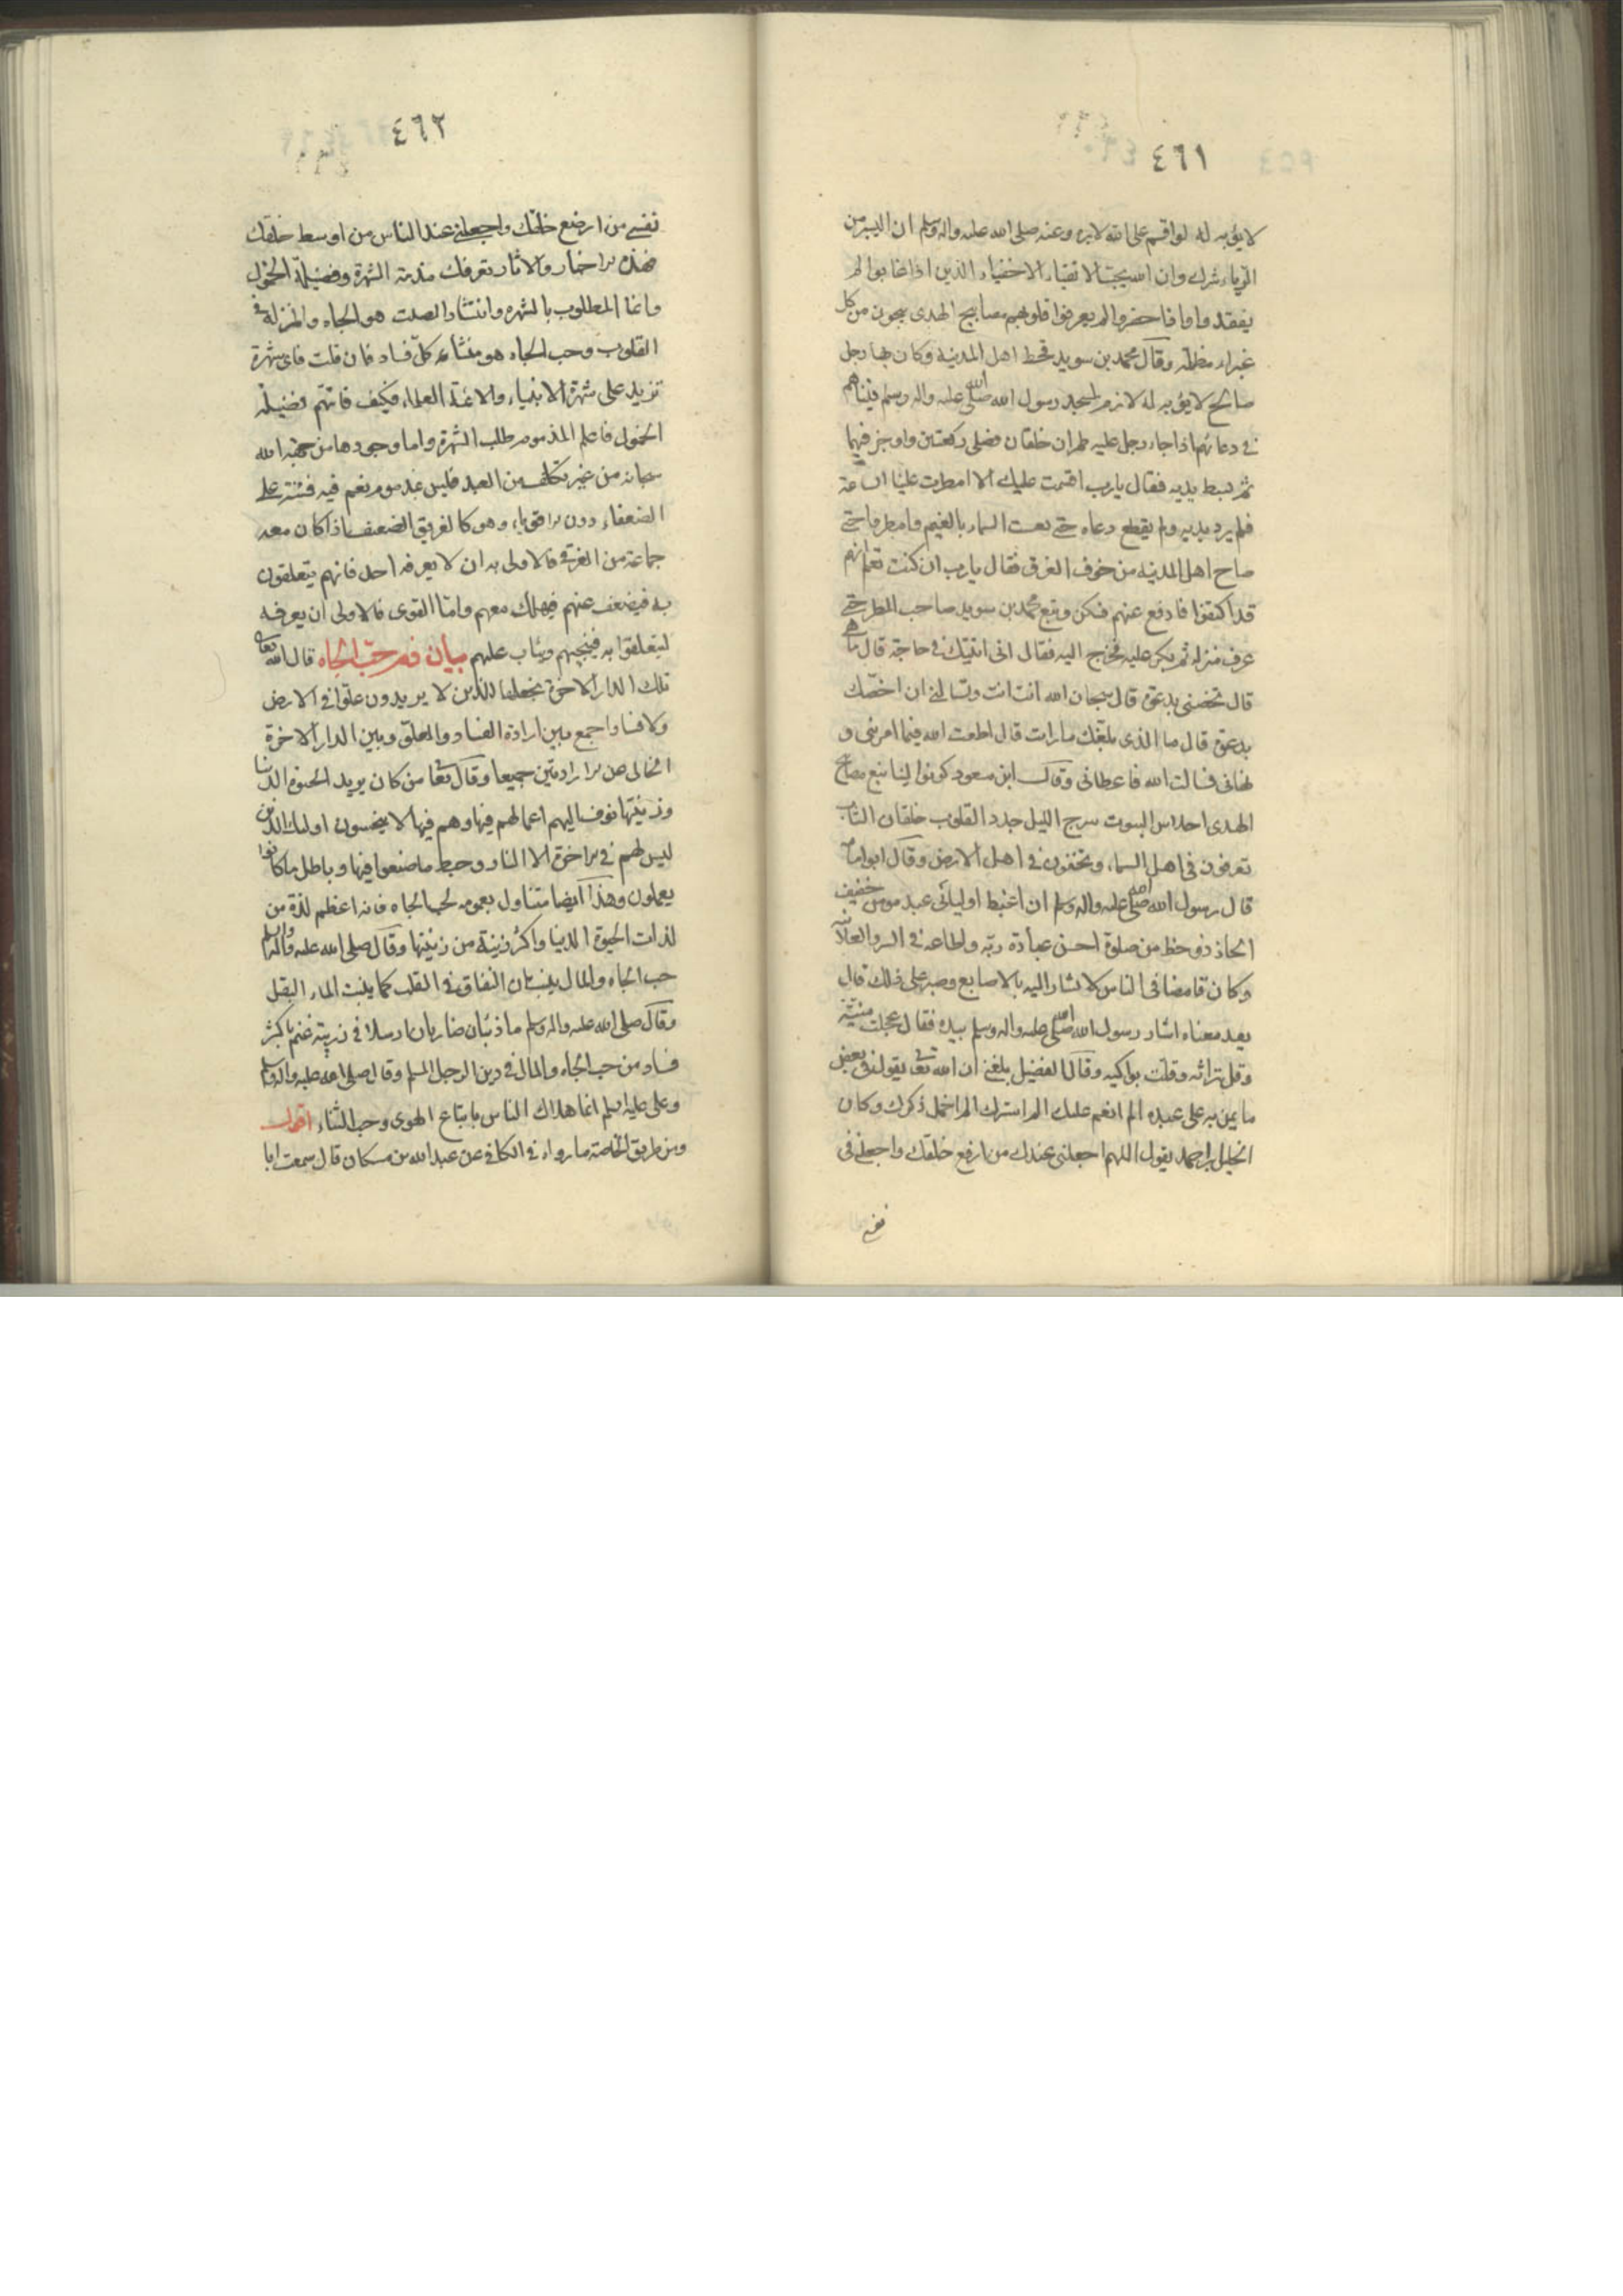 ٤٦١
لا يؤبه له لو اقسم على الله لابره وعنه صلى الله عليه واله وسلم ان اليسير من
الرياء شرك وان الله يحب الاتقياء الاخفياء الذين اذا غابوا لم
يفقدوا واذا حضروا لم يعرفوا قلوبهم مصابيح الهدى ينجون من كل
غبراء مظلمة وقال محمد بن سويد قحط اهل المدينة وكان بها رجل
صالح لا يؤبه له لازم لمسجد رسول الله صلى الله عليه واله وسلم فبيناهم
في دعائهم اذا جاء رجل عليه طمران خلقان فصلى ركعتين واوجز فيهما
ثم بسط يديه فقال يا رب اقسمت عليك الا امطرت علينا الساعة
فلم يرد يديه ولم يقطع دعاه حتى تغشت السماء بالغيم وامطروا حتى
صاح اهل المدينة من خوف الغرق فقال يا رب ان كنت تعلم انهم
قد اكتفوا فارفع عنهم فسكن وتبع محمد بن سويد صاحب المطر حتى
عرف منزله ثم بكر عليه فخرج اليه فقال اني اتيتك في حاجة قال ما هي
قال تخصني بدعوة قال سبحان الله انت انت وتسالني ان اخصك
بدعوة قال ما الذي بلغك ما رات قال اطعت الله فيما امرني و
نهاني فسالت الله فاعطاني وقال ابن مسعود كونوا ينابيع مصابيح
الهدى احلاس البيوت سرج الليل جدد القلوب خلقان الثياب
تعرفون في اهل السماء وتخفون في اهل الارض وقال ابو امامة
قال رسول الله صلى الله عليه واله وسلم ان اغبط اوليائي عبد مومن خفيف
الحاذ ذو حظ من صلوة احسن عبادة ربه واطاعه في السر والعلانية
وكان غامضا في الناس لا يشار اليه بالاصابع وصبر على ذلك قال
بعد معناه اشار رسول الله صلى الله عليه واله وسلم بيده فقال عجلت منيته
وقل تراثه وقلت بواكيه وقال الفضيل بلغني ان الله تعالى يقول في بعض
ما يمن به على عبده الم انعم عليك الم استرك الم اخمل ذكرك وكان
الخليل بن احمد يقول اللهم اجعلني عندك من ارفع خلقك واجعلني في
نفسي
٤٦٢
نفسي من اوضع خلقك واجعلني عند الناس من اوسط خلقك
فهذه الاخبار والاثار تعرفك مذمة الشهرة وفضيلة الخمول
وانما المطلوب بالشهره وانتشار الصيت هو الجاه والمنزلة في
القلوب وحب الجاه هو منشاء كل فساد فان قلت فاي شهرة
تزيد على شهرة الانبياء والائمة العلماء فكيف فاتهم فضيلة
الخمول فاعلم المذموم طلب الشهرة واما وجودها من جهة الله
سبحانه من غير تكلف من العبد فليس بمذموم نعم فيه فتنة على
الضعفاء دون الاقوياء وهو كالغريق الضعيف اذا كان معه
جماعة من الغرقى فالاولى به ان لا يعرفه احد فانهم يتعلقون
به فيضعف عنهم فيهلك معهم واما القوى فالاولى ان يعرفه
ليتعلقوا به فينجيهم ويثاب عليهم بيان ذم حب الجاه قال الله تعالى
تلك الدار الاخرة نجعلها للذين لا يريدون علوا في الارض
ولا فسادا جمع بين ارادة الفساد والعلو وبين الدار الاخرة
الخالى عن الارادتين جميعا وقال تعا من كان يريد الحيوة الدنيا
وزينتها نوف اليهم اعمالهم فيها وهم فيها لا يبخسون اولئك الذين
ليس لهم في الاخرة الا النار وحبط ما صنعوا فيها وباطل ما كانوا
يعملون وهذا ايضا متناول بعمومه لحب الجاه فانه اعظم لذة من
لذات الحيوة الدنيا واكثر زينة من زينتها وقال صلى الله عليه واله وسلم
حب الجاه والمال ينبتان النفاق في القلب كما ينبت الماء البقل
وقال صلى الله عليه واله وسلم ما ذئبان ضاريان ارسلا في زريبة غنم باكثر
فساد من حب الجاه والمال في دين الرجل المسلم وقال صلى الله عليه واله وسلم
وعلى عليه السلم انما هلاك الناس باتباع الهوى وحب الثناء اقول
ومن طريق الخاصة ما رواه في الكافي عن عبد الله بن مسكان قال سمعت ابا